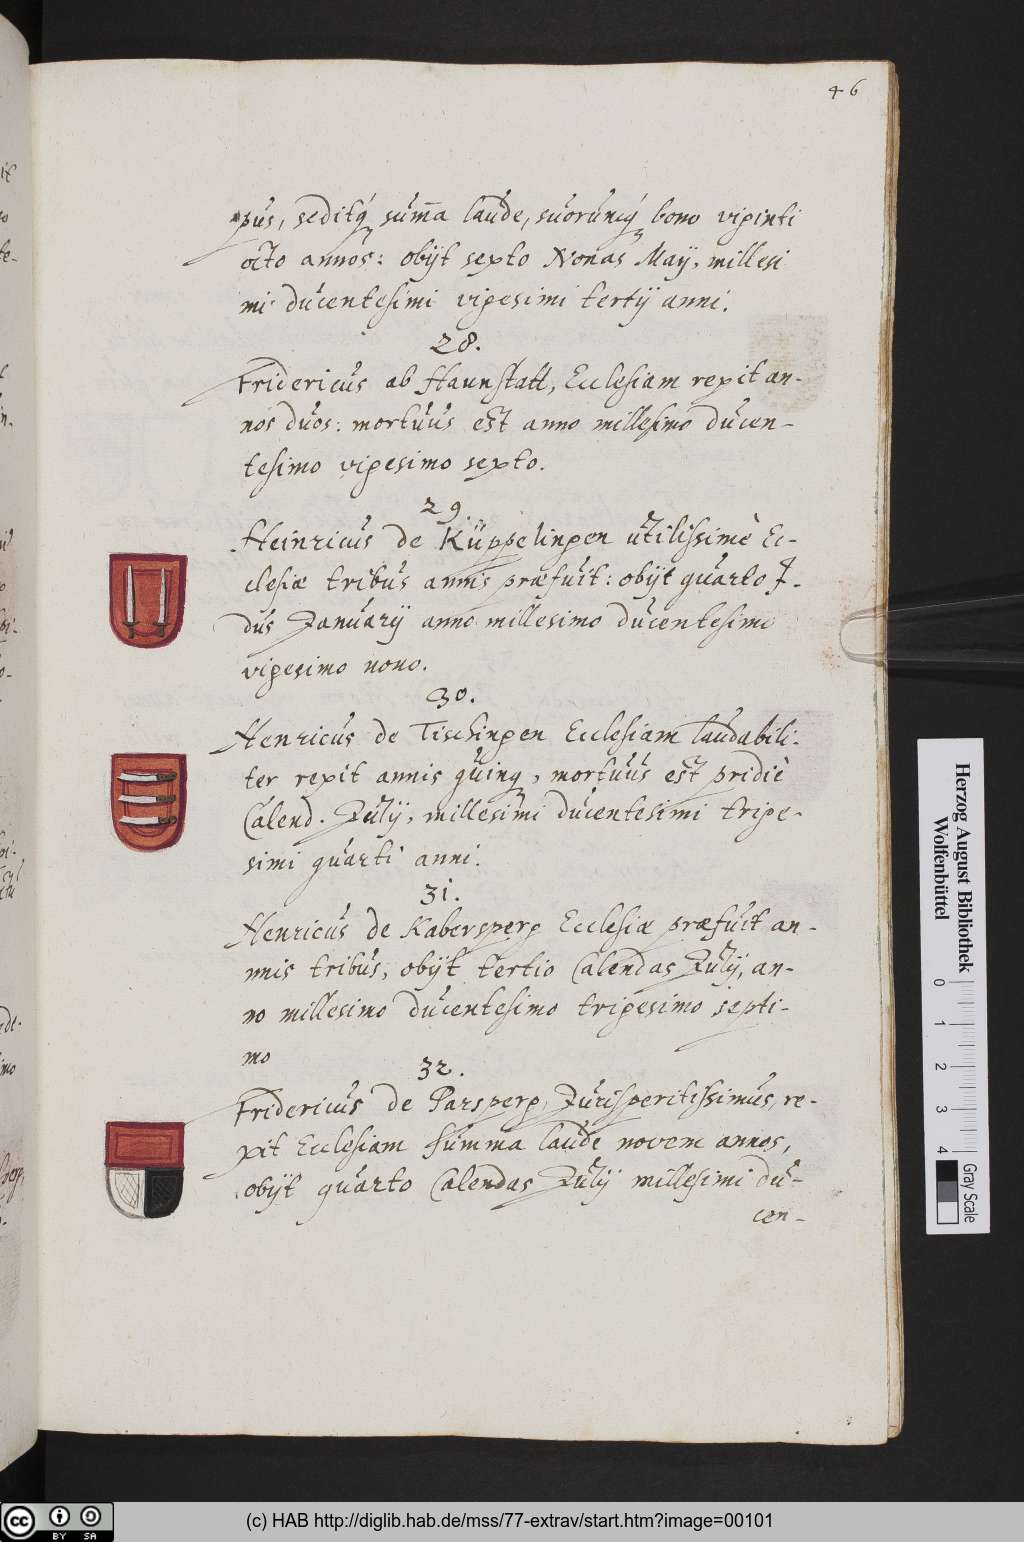 46
pus, seditq́ sum̄a laude, suorumq́ bono viginti
octo annos: obijt sexto Nonas Maÿ, millesi
mi ducentesimi vigesimi tertÿ anni.
28.
Fridericus ab Haunstatt, Ecclesiam rexit an-
nos duos: mortuus est anno millesimo ducen-
tesimo vigesimo sexto.
29.
Heinricus de Küppelingen utilissimè Ec-
clesiæ tribus annis præfuit: obijt quarto I-
dus Januarÿ anno millesimo ducentesimo
vigesimo nono.
30.
Henricus de Tischingen Ecclesiam laudabili-
ter rexit annis quinq, mortuus est pridiè
Calend. Julÿ, millesimi ducentesimi trige-
simi quarti anni.
31.
Henricus de Kabersperg Ecclesiæ præfuit an-
nnis tribus, obijt tertio Calendas Julÿ, an-
no millesimo ducentesimo trigesimo septi-
mo
32.
Fridericus de Parsperg, Jurisperitissimus, re-
xit Ecclesiam summa laude novem annos,
obijt quarto Calendas Julÿ millesimi du-
cen-
Herzog August Bibliothek
Wolfenbüttel
0 1 2 3 4
Gray Scale
cc BY SA
(c) HAB http://diglib.hab.de/mss/77-extrav/start.htm?image=00101